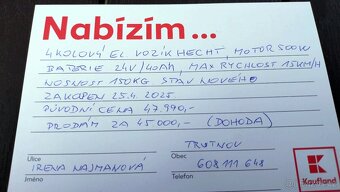 Nabízím...
4KOLOVÝ EL VOZÍK HECHT, MOTOR 500W
BATERIE 24V/40AH, MAX RYCHLOST 15KM/H
NOSNOST 150KG STAV NOVÉHO
ZAKOUPEN 25.4.2025
PŮVODNÍ CENA 47.990,-
PRODÁM ZA 45000,- (DOHODA)
TRUTNOV
Ulice Obec
IRENA NAJMANOVÁ 608 111 648
Jméno Telefon
Kaufland